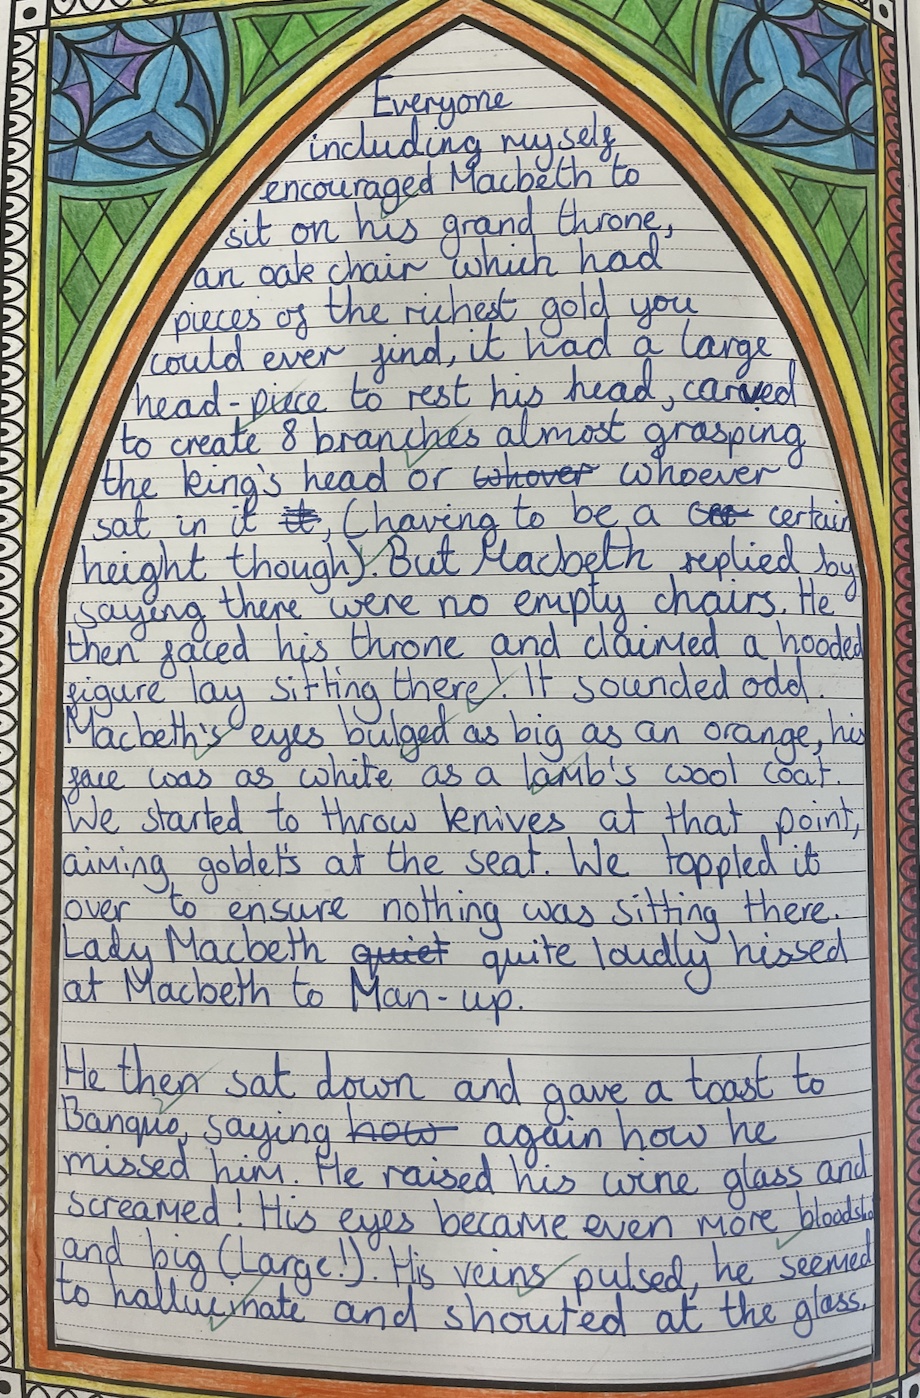 Everyone
including myself
encouraged Macbeth to
sit on his grand throne,
an oak chair which had
pieces of the richest gold you
could ever find, it had a large
head-piece to rest his head, carved
to create 8 branches almost grasping
the king's head or whover whoever
sat in it it, (having to be a certain
height though). But Macbeth replied by
saying there were no empty chairs. He
then faced his throne and claimed a hooded
figure lay sitting there! It sounded odd.
Macbeth's eyes bulged as big as an orange, his
face was as white as a lamb's wool coat.
We started to throw knives at that point,
aiming goblets at the seat. We toppled it
over to ensure nothing was sitting there.
Lady Macbeth quiet quite loudly hissed
at Macbeth to Man-up.
He then sat down and gave a toast to
Banquo, saying how again how he
missed him. He raised his wine glass and
screamed! His eyes became even more bloodsho
and big (Large!). His veins pulsed, he seemed
to hallucinate and shouted at the glass.